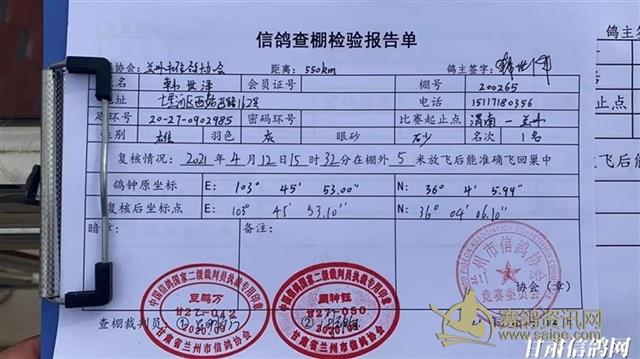 信鸽查棚检验报告单
协会: 兰州市信鸽协会 距离: 550km 鸽主签字:
名 韩世泽 会员证号 棚号 200265
地址 七里河区西站西路162号 电话 15117180356
足环号 20-27-0902985 密码环号 比赛起止点 渭南一兰州
性别 雄 羽色 灰 眼砂 砂 名次 1名
复核情况: 2021年4月12日15时32分在棚外5米放飞后能准确飞回巢中
鸽钟原坐标 E: 103° 45′ 53.00″ N: 36° 4′ 5.99″
复核后坐标点 E: 103° 45′ 53.10″ N: 36° 04′ 06.10″
暗章: 备注:
兰州市信鸽协会
竞赛委员会
协会(章)
中国信鸽国家二级裁判员执裁专用印章
豆鹏万
H2Z-042
甘肃省兰州市信鸽协会
中国信鸽国家二级裁判员执裁专用印章
H2Z-050
甘肃省兰州市信鸽协会
查棚裁判员: ① ②
赛鸽资讯网
www.saige.com
甘肃信鸽网
放飞后